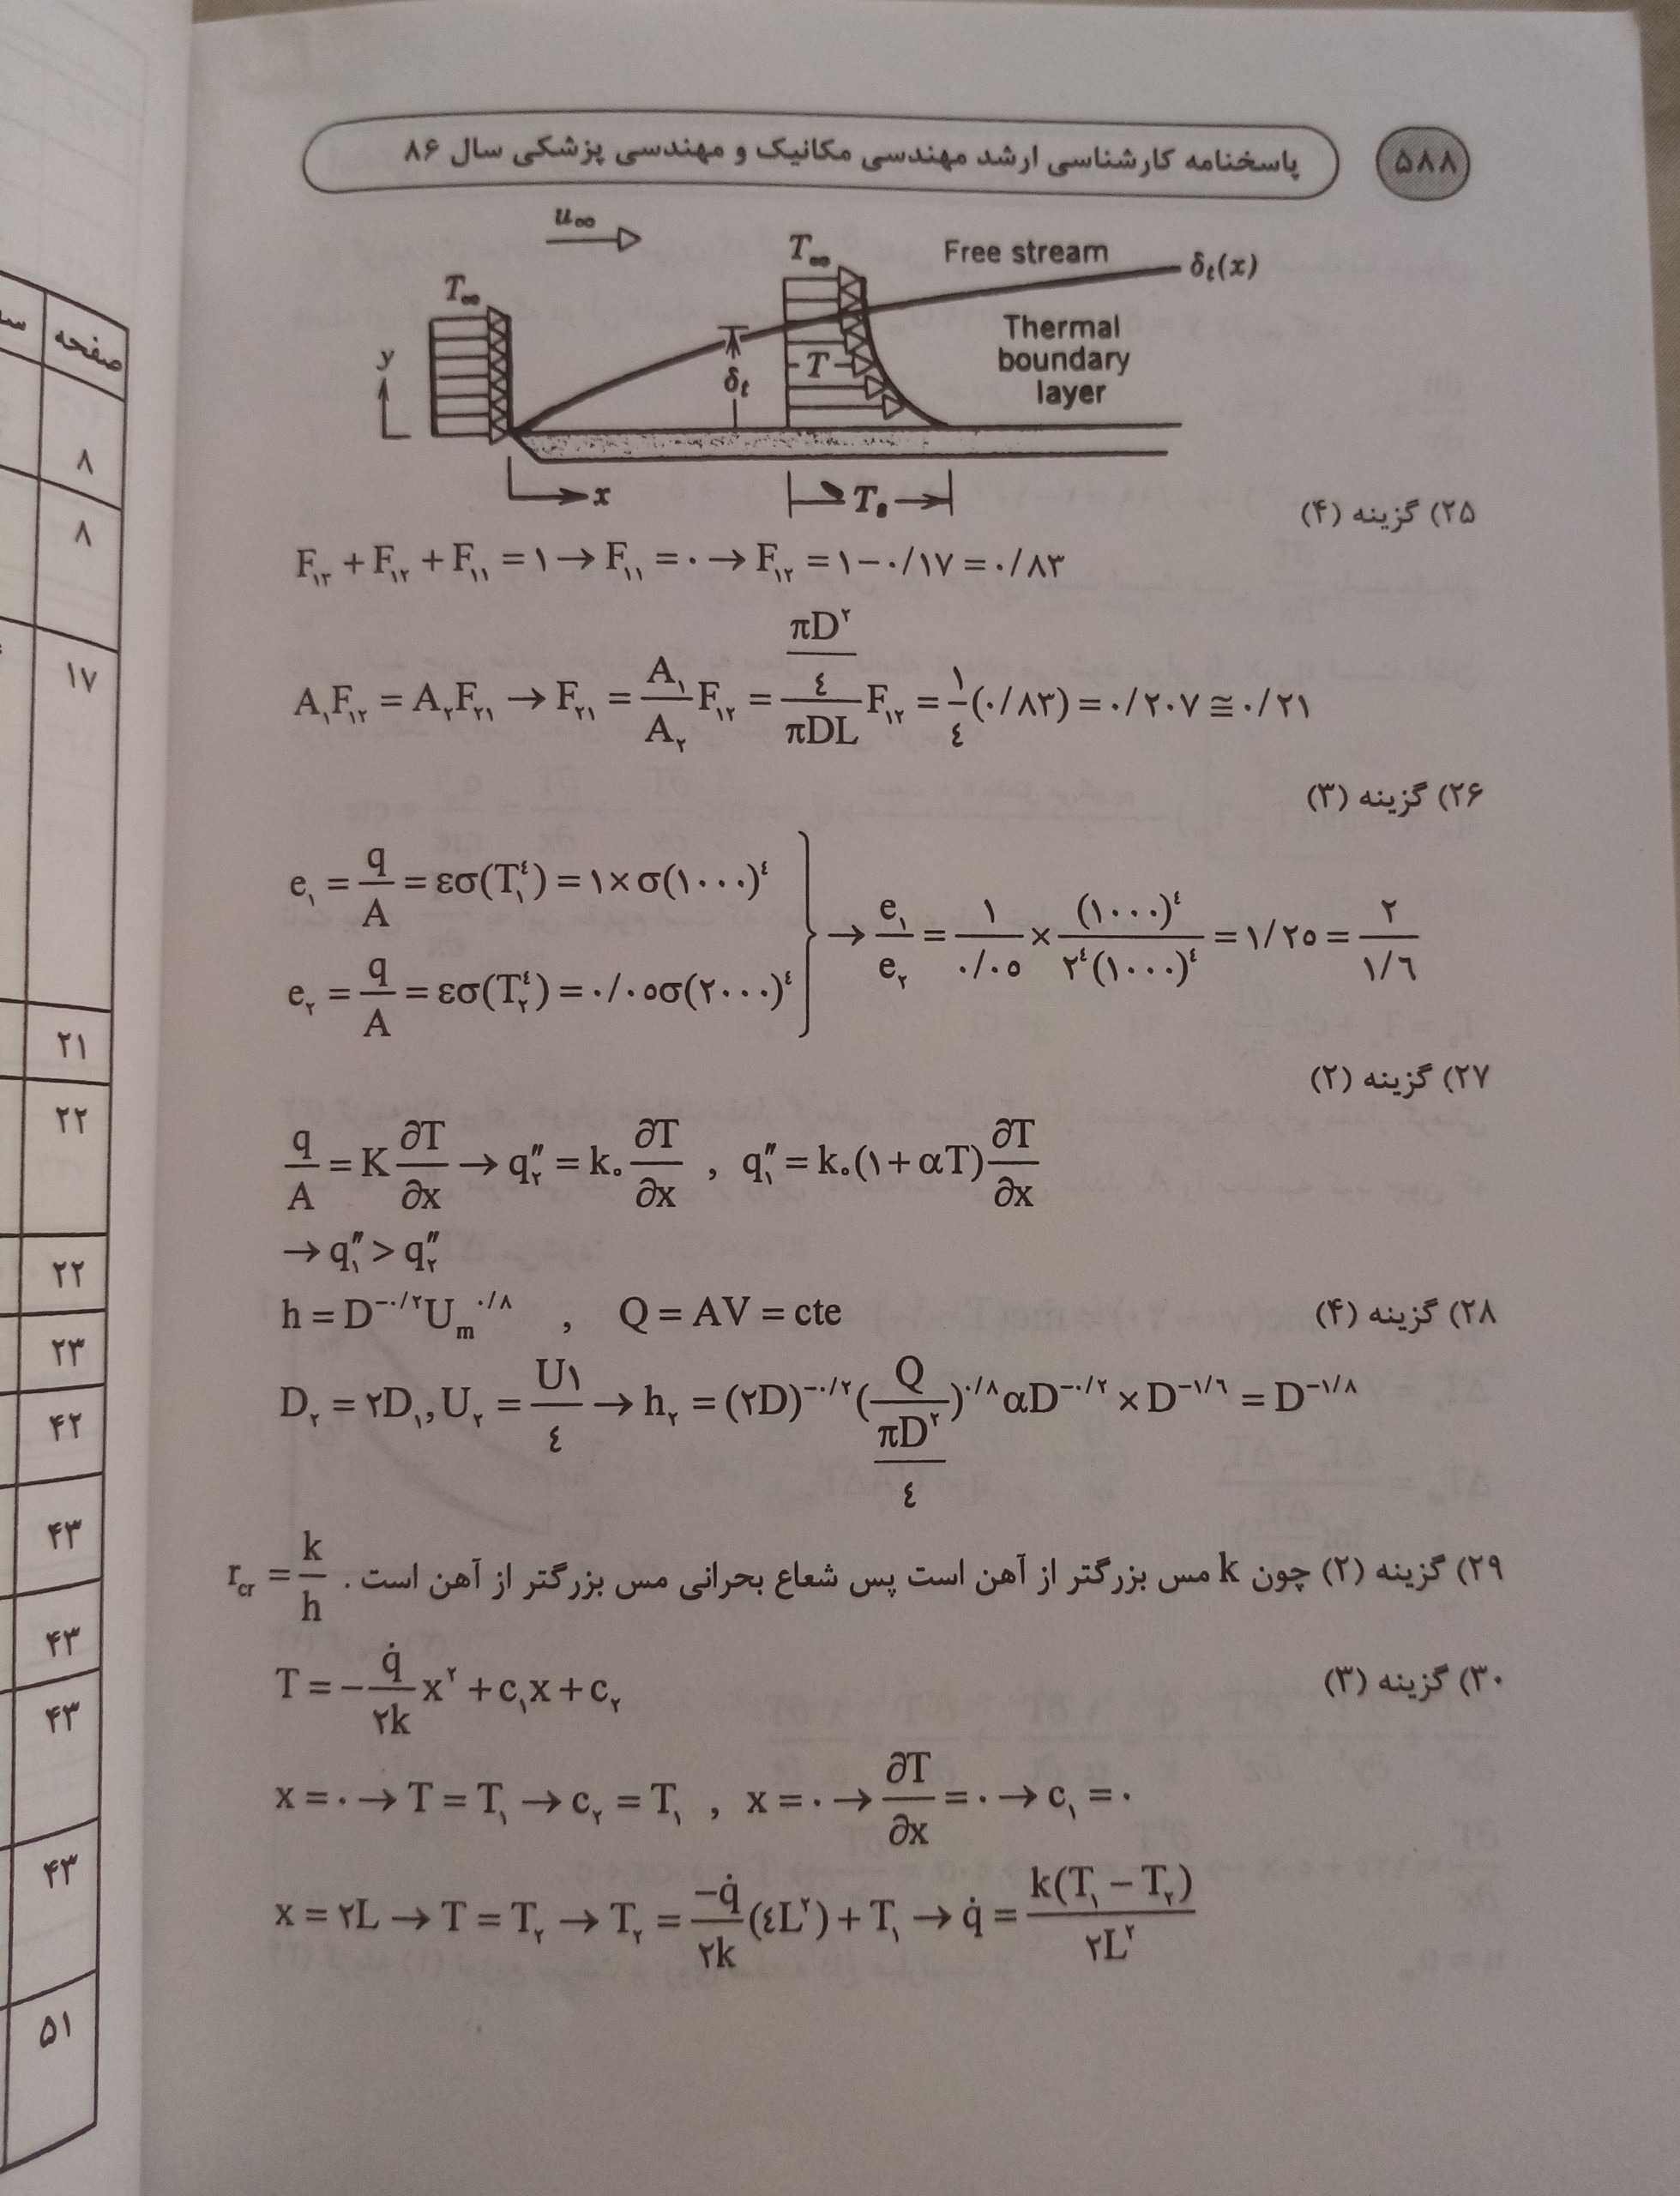 ۵۸۸
پاسخنامه کارشناسی ارشد مهندسی مکانیک و مهندسی پزشکی سال ۸۶
u∞
T∞
T∞
Free stream
δt(x)
y
δt
T
Thermal
boundary
layer
x
Ts
۲۵) گزینه (۴)
F۱۳ + F۱۲ + F۱۱ = ۱ → F۱۱ = ۰ → F۱۲ = ۱ − ۰/۱۷ = ۰/۸۳
A۱F۱۲ = A۲F۲۱ → F۲۱ = (A۱/A۲) F۱۲ = ((πD²/٤)/(πDL)) F۱۲ = (۱/٤)(۰/۸۳) = ۰/۲۰۷ ≅ ۰/۲۱
۲۶) گزینه (۳)
e۱ = q/A = εσ(T۱⁴) = ۱×σ(۱۰۰۰)⁴
e۲ = q/A = εσ(T۲⁴) = ۰/۰۵σ(۲۰۰۰)⁴
→ e۱/e۲ = (۱/(۰/۰۵)) × ((۱۰۰۰)⁴/(۲⁴(۱۰۰۰)⁴)) = ۱/۲۵ = ۲/(۱/٦)
۲۷) گزینه (۲)
q/A = K ∂T/∂x → q″۲ = k۰ ∂T/∂x , q″۱ = k۰(۱ + αT) ∂T/∂x
→ q″۱ > q″۲
۲۸) گزینه (۴)
h = D^(−۰/۲) Um^(۰/۸) , Q = AV = cte
D۲ = ۲D۱, U۲ = U۱/٤ → h۲ = (۲D)^(−۰/۲) (Q/(πD²/٤))^(۰/۸) αD^(−۰/۲) × D^(−۱/٦) = D^(−۱/۸)
۲۹) گزینه (۲) چون k مس بزرگتر از آهن است پس شعاع بحرانی مس بزرگتر از آهن است . rcr = k/h
۳۰) گزینه (۳)
T = −(q̇/۲k) x² + c۱x + c۲
x = ۰ → T = T۱ → c۲ = T۱ , x = ۰ → ∂T/∂x = ۰ → c۱ = ۰
x = ۲L → T = T۲ → T۲ = (−q̇/۲k)(٤L²) + T۱ → q̇ = k(T۱ − T۲)/۲L²
صفحه
۸
۸
۱۷
۲۱
۲۲
۲۲
۲۳
۴۲
۴۳
۴۳
۴۳
۴۳
۵۱